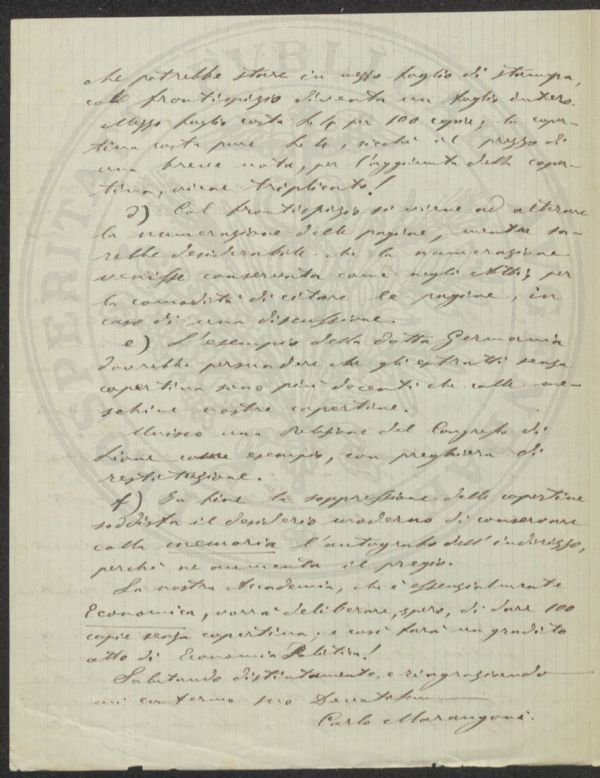 che potrebbe stare in mezzo foglio di stampa,
col frontispizio diventa un foglio intero.
Mezzo foglio costa L. 4 per 100 copie; la coper-
tina costa pure L. 4, sicchè il prezzo di
una breve nota, per l'aggiunta della coper-
tina, viene triplicato!
d) Col frontispizio si viene ad alterare
la numerazione delle pagine, mentre sa-
rebbe desiderabile che la numerazione
venisse conservata come negli Atti, per
la comodità di citare le pagine, in
caso di una discussione.
e) L'esempio della dotta Germania
dovrebbe persuadere che gli estratti senza
copertina sono più decenti che colle me-
schine nostre copertine.
Unisco una Relazione del Congresso di
Lione come esempio, con preghiera di
restituzione.
f) In fine la soppressione delle copertine
soddisfa il desiderio moderno di conservare
colla memoria l'autografo dell'indirizzo,
perchè ne aumenta il pregio.
La nostra Accademia, che è essenzialmente
Economica, vorrà deliberare, spero, di dare 100
copie senza copertina; e così farà un gradito
atto di Economia Politica!
Salutando distintamente, e ringraziando
mi confermo suo
Carlo Marangoni.